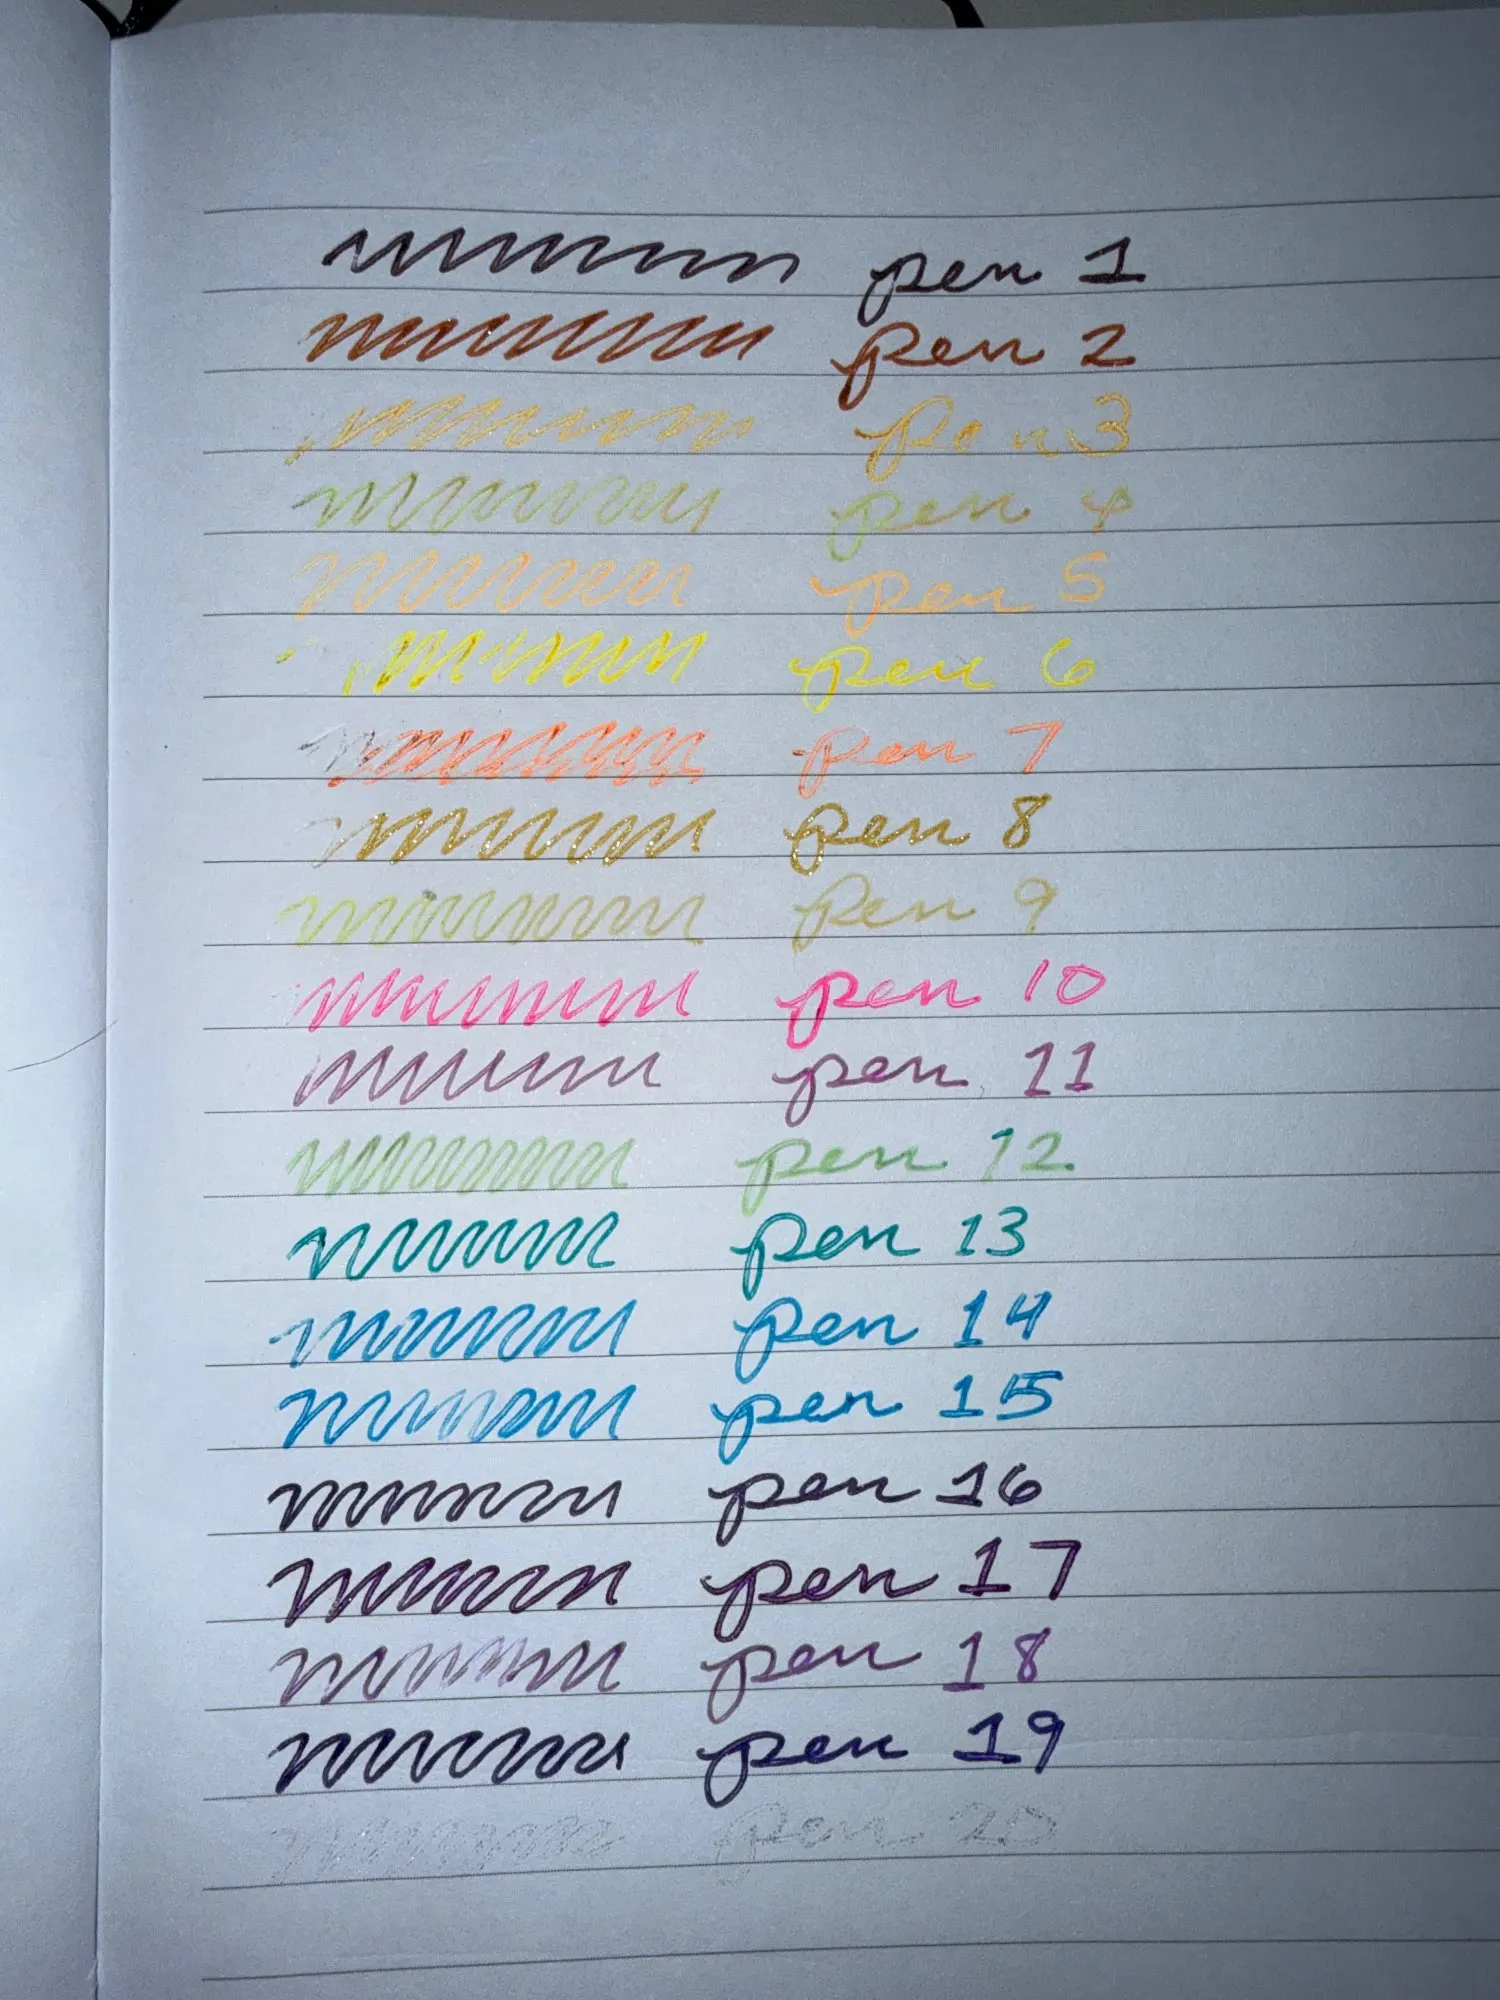 pen 1
pen 2
pen 3
pen 4
pen 5
pen 6
pen 7
pen 8
pen 9
pen 10
pen 11
pen 12
pen 13
pen 14
pen 15
pen 16
pen 17
pen 18
pen 19
pen 20